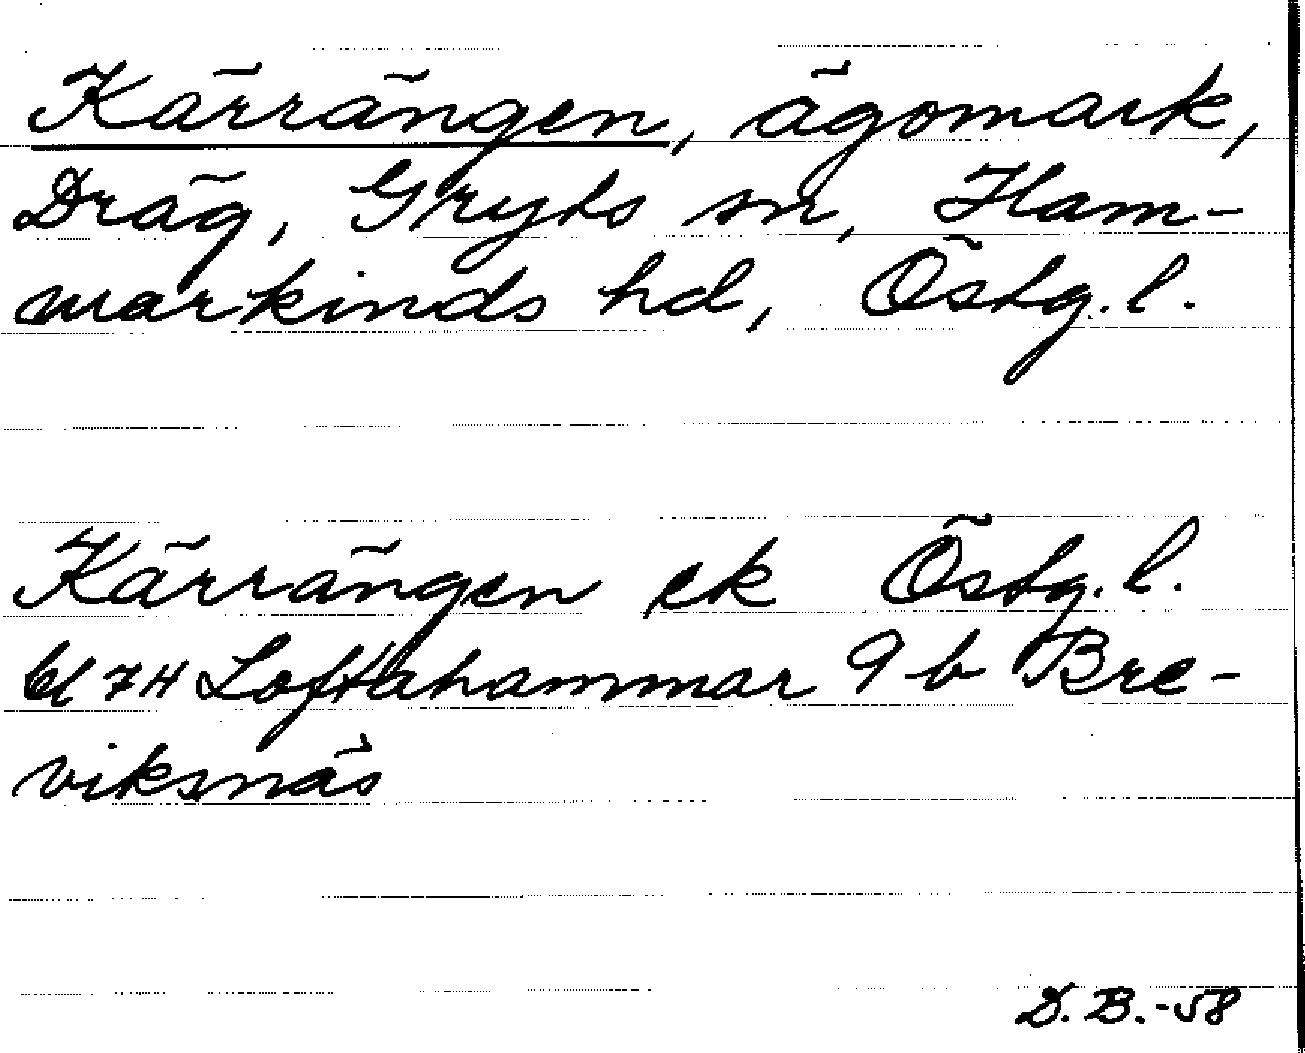 Kärrängen, ägomark,
Dräg, Gryts sn, Ham-
markinds hd, Östg. l.
Kärrängen ek Östg. l.
bl 7H Loftahammar 9 b Bre-
viksnäs
D. B. -58